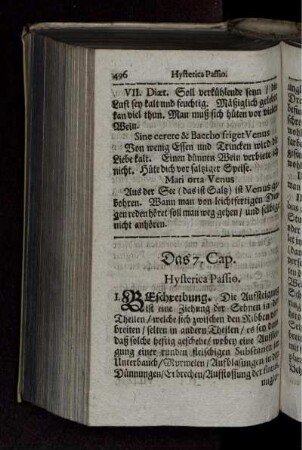 496 Hysterica Passio.
VII. Diæt. Soll verkühlende seyn / die
Lufft sey kalt und feuchtig. Mäßiglich gelebet
kan viel thun. Man muß sich hüten vor vielen
Wein.
Sine cerere & Baccho friget Venus
Von wenig Essen und Trincken wird die
Liebe kalt. Einen dünnen Wein verbiete ich
nicht. Hüte dich vor saltziger Speise.
Mari orta Venus
Aus der See (das ist Saltz) ist Venus ge-
bohren. Wann man von leichtfertigen Din-
gen reden höret soll man weg gehen / und selbige
nicht anhören.
Das 7. Cap.
Hysterica Passio.
I. BEschreibung. Die Auffsteigung
ist eine Ziehung der Sehnen in den
Theilen / welche sich zwischen den Ribben ver-
breiten / selten in andern Theilen / es sey dann
daß solche hefftig geschehe / wobey eine Auffstei-
gung einer runden fleischigen Substantz im
Unterbauch / Murmelen / Auffblasungen in den
Dünnungen / Erbrechen / Auffstossung der